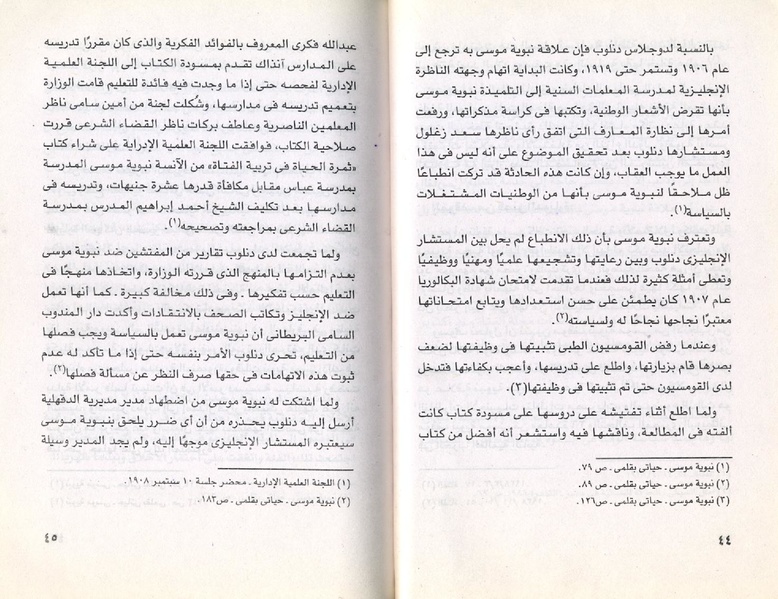 بالنسبة لدوجلاس دنلوب فإن علاقة نبوية موسى به ترجع إلى
عام ١٩٠٦ وتستمر حتى ١٩١٩، وكانت البداية اتهام وجهته الناظرة
الإنجليزية لمدرسة المعلمات السنية إلى التلميذة نبوية موسى
بأنها تقرض الأشعار الوطنية، وتكتبها فى كراسة مذكراتها، ورفعت
أمرها إلى نظارة المعارف التى اتفق رأى ناظرها سعد زغلول
ومستشارها دنلوب بعد تحقيق الموضوع على أنه ليس فى هذا
العمل ما يوجب العقاب، وإن كانت هذه الحادثة قد تركت انطباعًا
ظل ملاحقًا لنبوية موسى بأنها من الوطنيات المشتغلات
بالسياسة(١).
وتعترف نبوية موسى بأن ذلك الانطباع لم يحل بين المستشار
الإنجليزى دنلوب وبين رعايتها وتشجيعها علميًا ومهنيًا ووظيفيًا
وتعطى أمثلة كثيرة لذلك فعندما تقدمت لامتحان شهادة البكالوريا
عام ١٩٠٧ كان يطمئن على حسن استعدادها ويتابع امتحاناتها
معتبرًا نجاحها نجاحًا له ولسياسته(٢).
وعندما رفض القومسيون الطبى تثبيتها فى وظيفتها لضعف
بصرها قام بزيارتها، واطلع على تدريسها، وأعجب بكفاءتها فتدخل
لدى القومسيون حتى تم تثبيتها فى وظيفتها(٣).
ولما اطلع أثناء تفتيشه على دروسها على مسودة كتاب كانت
ألفته فى المطالعة، وناقشها فيه واستشعر أنه أفضل من كتاب
(١) نبوية موسى ـ حياتى بقلمى ـ ص ٧٩.
(٢) نبوية موسى ـ حياتى بقلمى ـ ص ٨٩.
(٣) نبوية موسى ـ حياتى بقلمى ـ ص١٢٦.
٤٤
عبدالله فكرى المعروف بالفوائد الفكرية والذى كان مقررًا تدريسه
على المدارس آنذاك تقدم بمسودة الكتاب إلى اللجنة العلمية
الإدارية لفحصه حتى إذا ما وجدت فيه فائدة للتعليم قامت الوزارة
بتعميم تدريسه فى مدارسها، وشُكلت لجنة من أمين سامى ناظر
المعلمين الناصرية وعاطف بركات ناظر القضاء الشرعى قررت
صلاحية الكتاب، فوافقت اللجنة العلمية الإدراية على شراء كتاب
«ثمرة الحياة فى تربية الفتاة» من الآنسة نبوية موسى المدرسة
بمدرسة عباس مقابل مكافأة قدرها عشرة جنيهات، وتدريسه فى
مدارسها بعد تكليف الشيخ أحمد إبراهيم المدرس بمدرسة
القضاء الشرعى بمراجعته وتصحيحه(١).
ولما تجمعت لدى دنلوب تقارير من المفتشين ضد نبوية موسى
بعدم التزامها بالمنهج الذى قررته الوزارة، واتخاذها منهجًا فى
التعليم حسب تفكيرها ـ وفى ذلك مخالفة كبيرة ـ كما أنها تعمل
ضد الإنجليز وتكاتب الصحف بالانتقادات وأكدت دار المندوب
السامى البريطانى أن نبوية موسى تعمل بالسياسة ويجب فصلها
من التعليم، تحرى دنلوب الأمر بنفسه حتى إذا ما تأكد له عدم
ثبوت هذه الاتهامات فى حقها صرف النظر عن مسألة فصلها(٢).
ولما اشتكت له نبوية موسى من اضطهاد مدير مديرية الدقهلية
أرسل إليه دنلوب يحذره من أن أى ضرر يلحق بنبوية موسى
سيعتبره المستشار الإنجليزى موجهًا إليه، ولم يجد المدير وسيلة
(١) اللجنة العلمية الإدارية ـ محضر جلسة ١٠ سبتمبر ١٩٠٨.
(٢) نبوية موسى ـ حياتى بقلمى ـ ص١٨٣.
٤٥